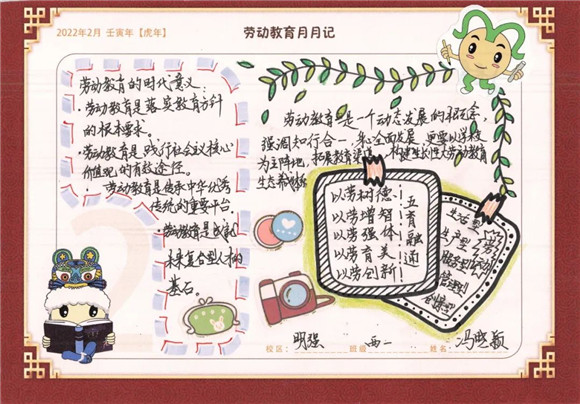 2022年2月 壬寅年【虎年】
劳动教育月月记
劳动教育的时代意义:
·劳动教育是落实教育方针
的根本要求。
·劳动教育是践行社会主义核心
价值观的有效途径。
·劳动教育是继承中华优秀
传统的重要平台
·劳动教育是成就
未来复合型人才的
基石。
劳动教育是一个动态发展的概念,
强调知行合一
全面发展 更要以学校
为主阵地,拓展教育
劳动教育
生态
以劳树德!
以劳增智!
以劳强体!
以劳育美!
以劳创新!
五育融通
生活型
生产型 劳动
服务型
管理型
创新型
校区: 明强 班级: 西一 姓名: 冯晓颖